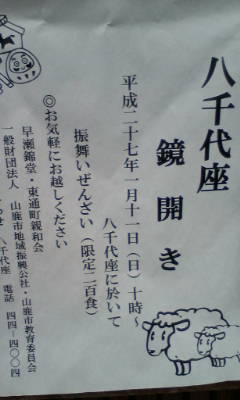 八千代座
鏡開き
平成二十七年一月十一日（日）十時～
八千代座に於いて
振舞いぜんざい（限定二百食）
◎お気軽にお越しください
早瀬錦堂・東通町親和会
山鹿市地域振興公社・山鹿市教育委員会
一般財団法人
八千代座 電話 四四―四〇〇四